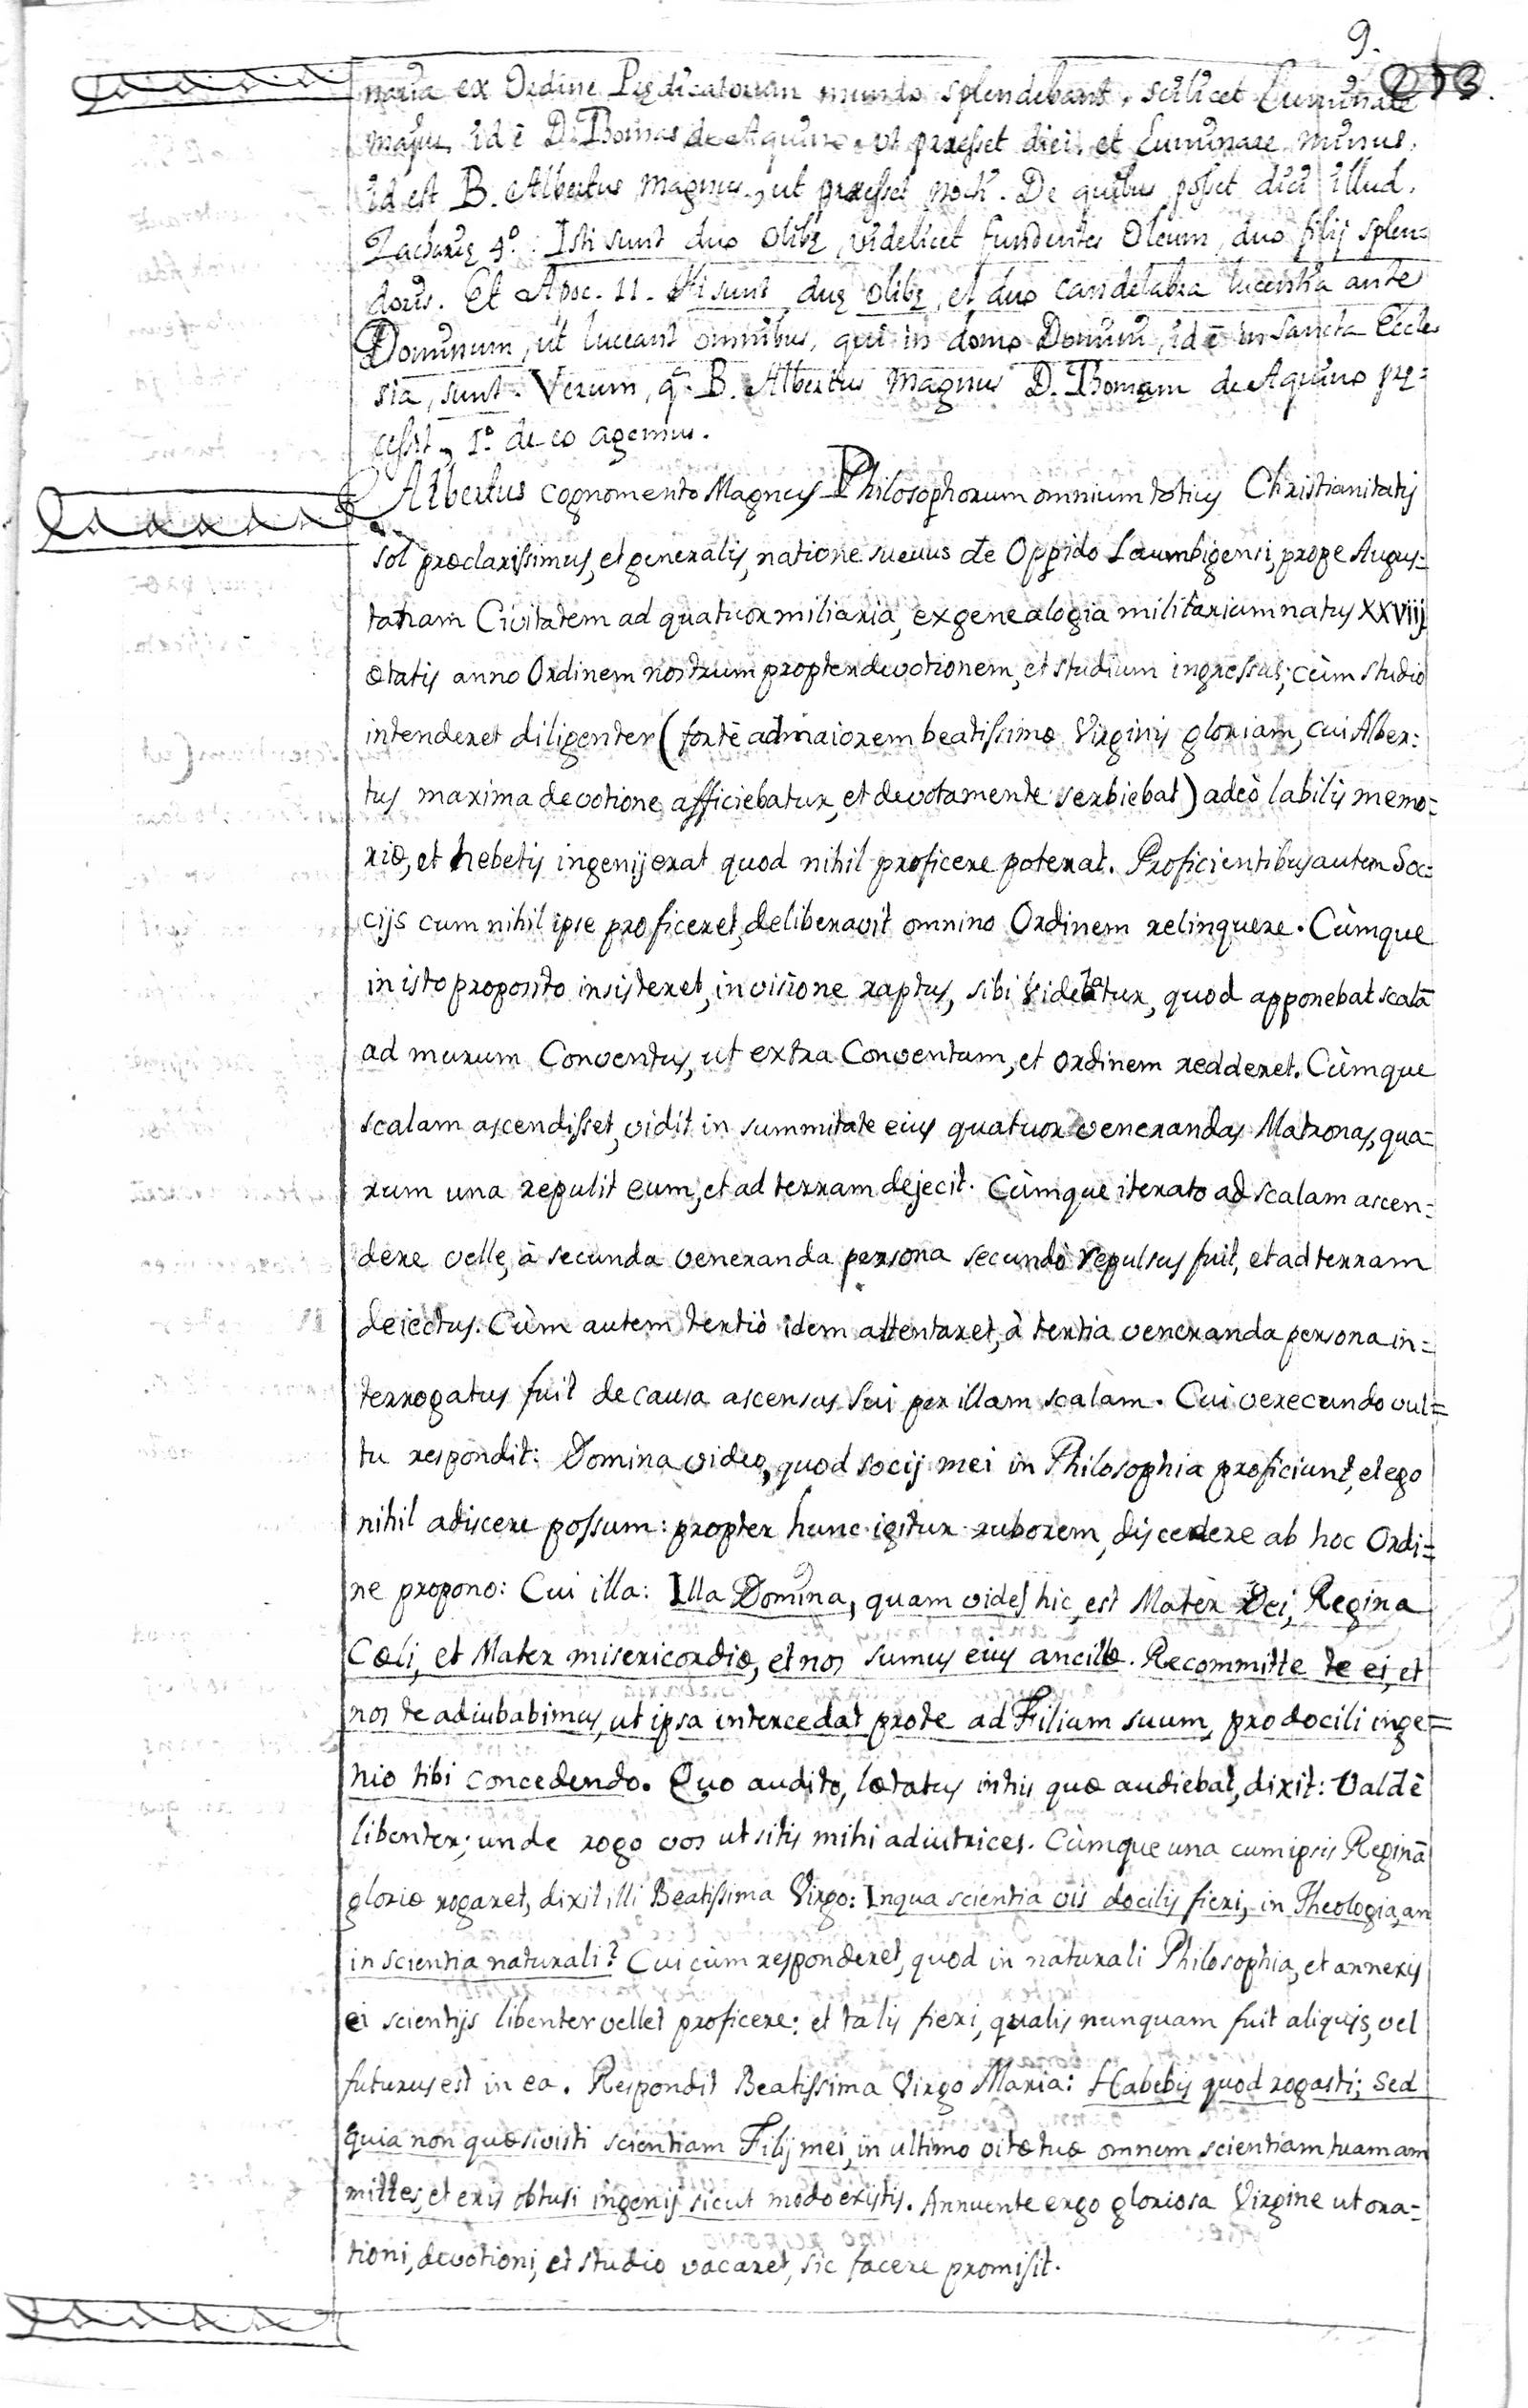 9.
213.
naria ex Ordine Prędicatorum mundo splendebant, scilicet Luminare
majus, id ē D. Thomas de Aquino, ut præesset diei, et Luminare minus,
id est B. Albertus Magnus, ut præesset nocti. De quibus posset dici illud.
Zacharię 4.º: Isti sunt duo olibę, videlicet fundentes Oleum, duo filij splen=
doris. Et Apoc. 11. Hi sunt duę olibę, et duo candelabra lucentia ante
Dominum, ut luceant omnibus, qui in domo Domini, id ē in Sancta Eccle
sia, sunt. Verum, q. B. Albertus Magnus D. Thomam de Aquino prę=
cessit, 1.º de eo agemus.
Albertus cognomento Magnus Philosophorum omnium totius Christianitatis
sol præclarissimus, et generalis, natione suevus de Oppido Laumbigensi, prope Augus=
tanam Civitatem ad quatuor miliaria, ex genealogia militarium natus XXVIIJ
ætatis anno Ordinem nostrum propter devotionem, et studium ingressus; cùm studio
intenderet diligenter (fortè ad maiorem beatissimæ Virginis gloriam, cui Alber:
tus maxima devotione afficiebatur, et devotamente serbiebat) adeò labilis memo=
riæ, et hebetis ingenij erat quod nihil proficere poterat. Proficientibus autem Soc=
cijs cum nihil ipse proficeret, deliberavit omnino Ordinem relinquere. Cùmque
in isto proposito insisteret, in visione raptus, sibi videbatur, quod apponebat scalã
ad murum Conventus, ut extra Conventum, et ordinem redderet. Cùmque
scalam ascendisset, vidit in summitate eius quatuor venerandas Matronas, qua=
rum una repulit eum, et ad terram dejecit. Cùmque iterato ad scalam ascen=
dere velle, à secunda veneranda persona secundò repulsus fuit, et ad terram
deiectus. Cùm autem tertiò idem attentaret, à tertia veneranda persona in=
terrogatus fuit de causa ascensus sui per illam scalam. Cui verecundo vul=
tu respondit: Domina video, quod socij mei in Philosophia proficiunt, et ego
nihil adiscere possum: propter hunc igitur ruborem, discedere ab hoc Ordi=
ne propono: Cui illa: Illa Domina, quam vides hic, est Mater Dei, Regina
Cæli, et Mater misericordiæ, et nos sumus eius ancillæ. Recommitte te ei, et
nos te adiubabimus, ut ipsa intercedat pro te ad Filium suum, pro docili inge=
nio tibi concedendo. Quo audito, lætatus in his quæ audiebat, dixit: Valdè
libenter; unde rogo vos ut sitis mihi adiutrices. Cùmque una cum ipsis Reginã
gloriæ rogaret, dixit illi Beatissima Virgo: In qua scientia vis docilis fieri, in Theologia, an
in scientia naturali? Cui cùm responderet, quod in naturali Philosophia, et annexis
ei scientijs libenter vellet proficere: et talis fieri, qualis nunquam fuit aliquis, vel
futurus est in ea. Respondit Beatissima Virgo Maria: Habebis quod rogasti; sed
quia non quæsivisti scientiam Filij mei, in ultimo vitæ tuæ omnem scientiam tuam am
mittes, et eris obtusi ingenij sicut modo existis. Annuente ergo gloriosa Virgine ut ora=
tioni, devotioni, et studio vacaret, sic facere promisit.